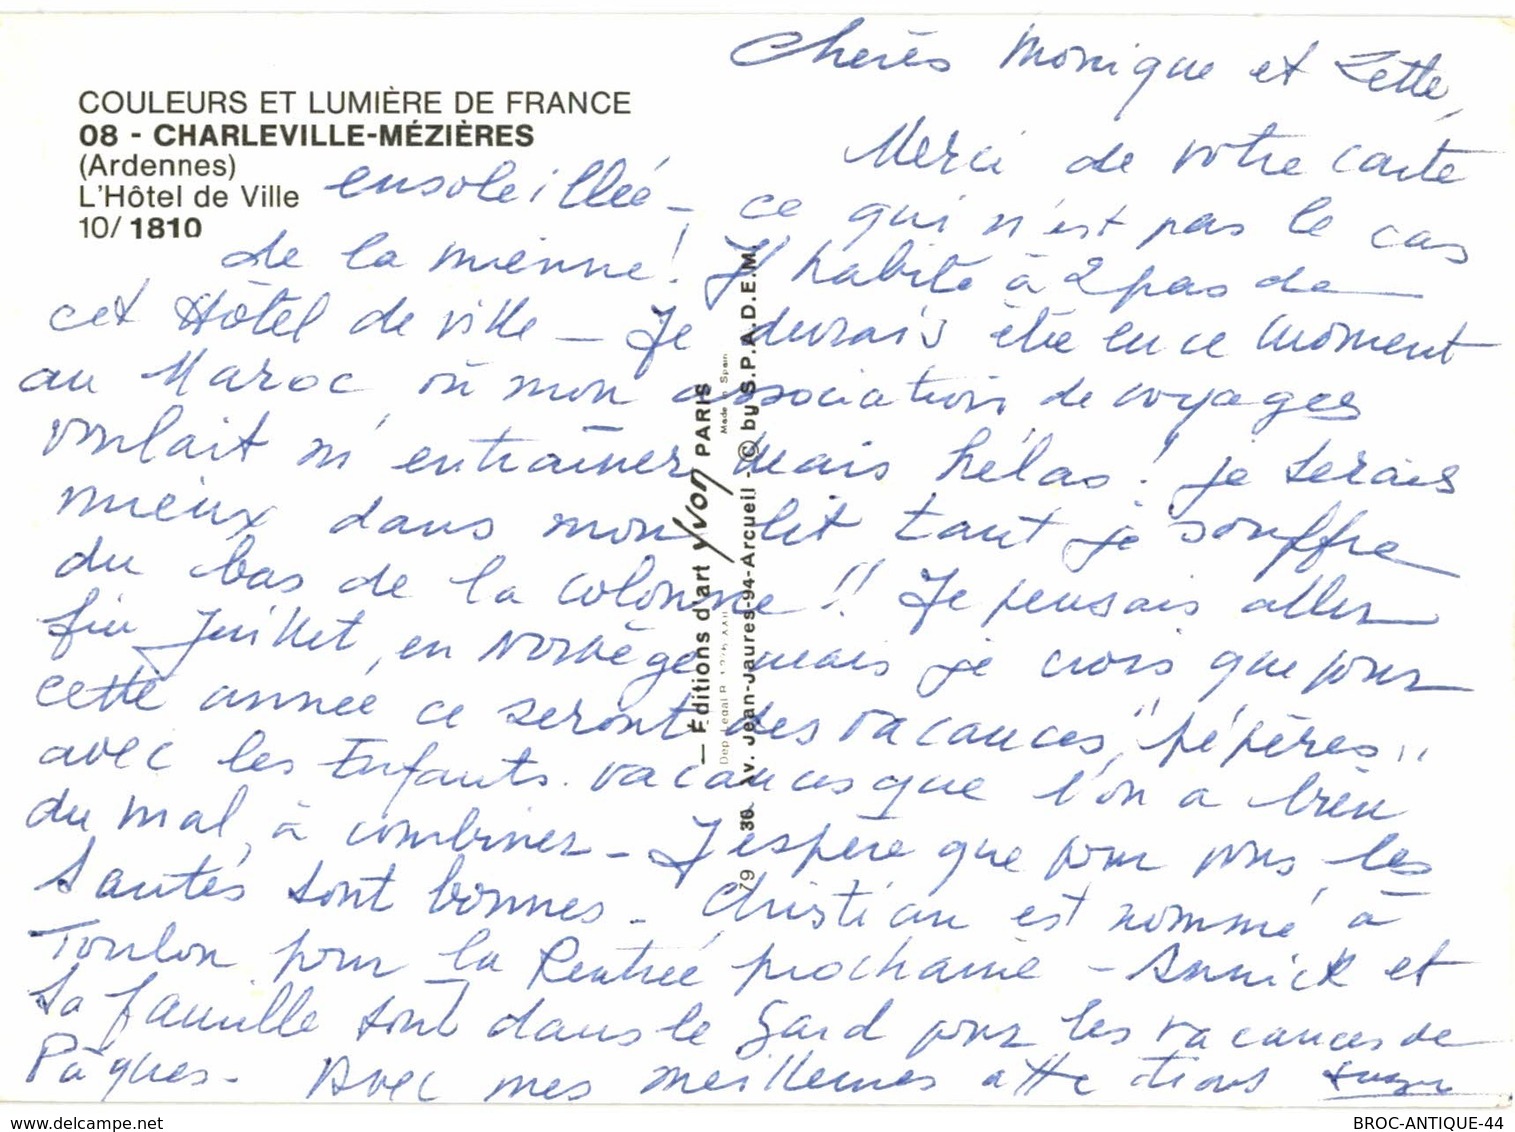 Chères Monique et Zette,
COULEURS ET LUMIÈRE DE FRANCE
08 - CHARLEVILLE-MÉZIÈRES
(Ardennes)
L'Hôtel de Ville
10/ 1810
Merci de votre carte
ensoleillée - ce qui n'est pas le cas
de la mienne ! J'habite à 2 pas de
cet Hôtel de ville - Je devrais être en ce moment
au Maroc où mon association de voyages
voulait m'entraîner mais hélas ! je serais
mieux dans mon lit tant je souffre
du bas de la colonne !! Je pensais aller
fin Juillet, en Norvège mais je crois que pour
cette année ce seront des vacances "pépères"
avec les Enfants. vacances que l'on a bien
du mal à combiner - J'espère que pour vous, les
santés sont bonnes - Christian est nommé à
Toulon pour la Rentrée prochaine - Annick et
sa famille sont dans le Gard pour les vacances de
Pâques. Avec mes meilleures attentions
— Éditions d'art Yvon PARIS
Made in Spain
79 36 Av. Jean-Jaures-94-Arcueil - © by S.P.A.D.E.M.
www.delcampe.net
BROC-ANTIQUE-44